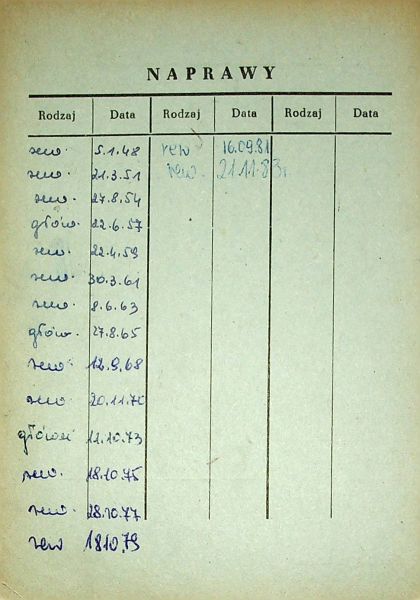 NAPRAWY
Rodzaj Data Rodzaj Data Rodzaj Data
rew. 5.1.48 rew 16.09.81
rew. 21.3.51 rew. 21.11.83r.
rew. 27.8.54
głów. 22.6.57
rew. 22.4.59
rew. 30.3.61
rew. 8.6.63
głów. 27.8.65
rew. 12.9.68
rew. 20.11.70
główna 12.10.73
rew. 18.10.75
rew. 28.10.77
rew 18.10.79